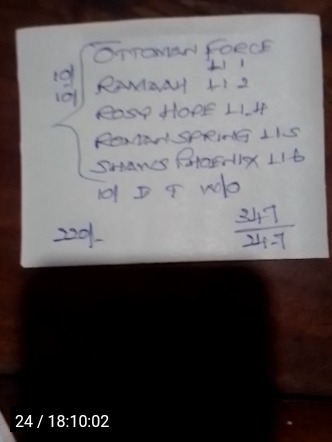 10/10
OTTOMAN FORCE
L1 1
RAMAAH L1 2
ROSY HOPE L1.4
ROMAN SPRING L1.5
SHAWS PHOENIX L1 6
10/ D T W/O
34-7
220/- 24-7
24 / 18:10:02